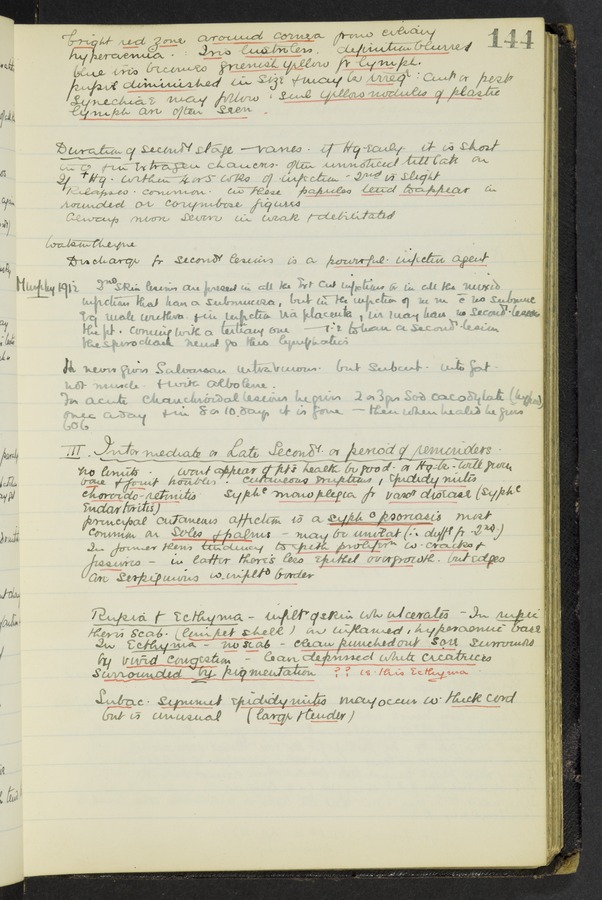 144
bright red zone around cornea from ciliary
hyperaemia. : Iris lustreless. definition blurred
blue iris becomes greenish yellow fr lymph.
pupil diminished in size + may be irreg: ant or post
synechiae may follow : small yellow nodules of plastic
lymph are often seen.
Duration of second^y stage - varies. if Hg early it is short
in ♂ + in Extragen chancres often unnoticed till late on
If + Hg. within 4 or 5 wks of infection 2nd is slight
Relapses common. in these papules tend to appear in
rounded or corymbose figures
always more severe in weak + debilitated
Watson Cheyne
Discharge fr second^y lesions is a powerful infective agent
Murphy 1912
2nd Skin lesions are present in all the Ext Cut infections & in all the mixed
infections that have a submucosa, but in the infection of m m c no submuc
Eg male urethra + in infection via placenta, we may have no second^y lesion
the pt. coming with a tertiary one to have a second^y lesion
the spirochaete must go thro lymphatics
He never gives Salvarsan intravenous but subcut. into fat
not muscle. + with albolene.
In acute chancroidal lesions he gives 2 or 3 grs Sod cacodylate
once a day + in 8 or 10 days it is gone - then when healed he gives
606
III. Intermediate or Late Second^y. or period of reminders.
no limits. wont appear if pt's health be good. or Hg be well given
bone + joint troubles. cutaneous eruptions, Epididymitis
choroido-retinitis Syph^c monoplegia fr vasc^r disease (Syph^c
Endarteritis)
principal cutaneous affection is a syph^c psoriasis most
common on soles + palms - may be unilat (∴ diff^t fr 2nd)
In former there's tendency to epith prolif^n w. cracks +
fissures - in latter there's less epithel overgrowth. but edges
are serpiginous w. infilt^d border
Rupia + Ecthyma - infilt^n of skin wh ulcerates - In rupia
there is scab. (limpet shell) on inflamed, hyperaemic base
In Ecthyma - no scab - clean punched out sore surrounded
by vivid congestion - leaves depressed white cicatrices
surrounded by pigmentation ?? is this Ecthyma
Subac. symmet epididymitis may occur w. thick cord
but is unusual (large + tender)